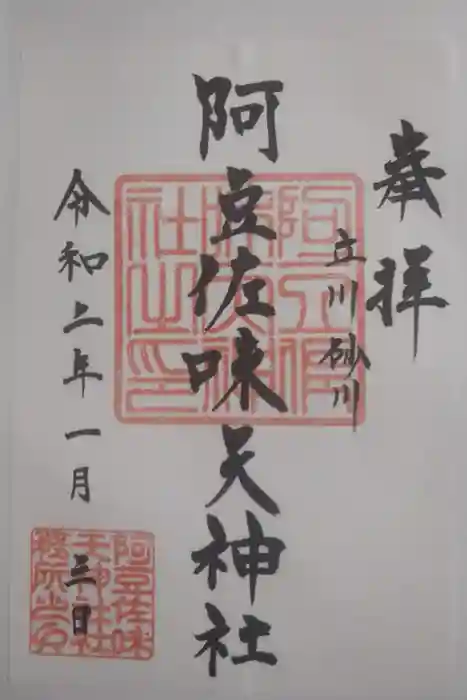 奉拝
立川砂川
阿豆佐味天神社
令和二年一月三日
阿豆佐味
天神社
務所之印